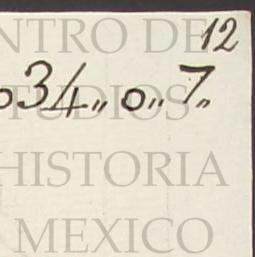 12
034,, 0,, 7,,
CENTRO DE
ESTUDIOS
HISTORIA
MEXICO